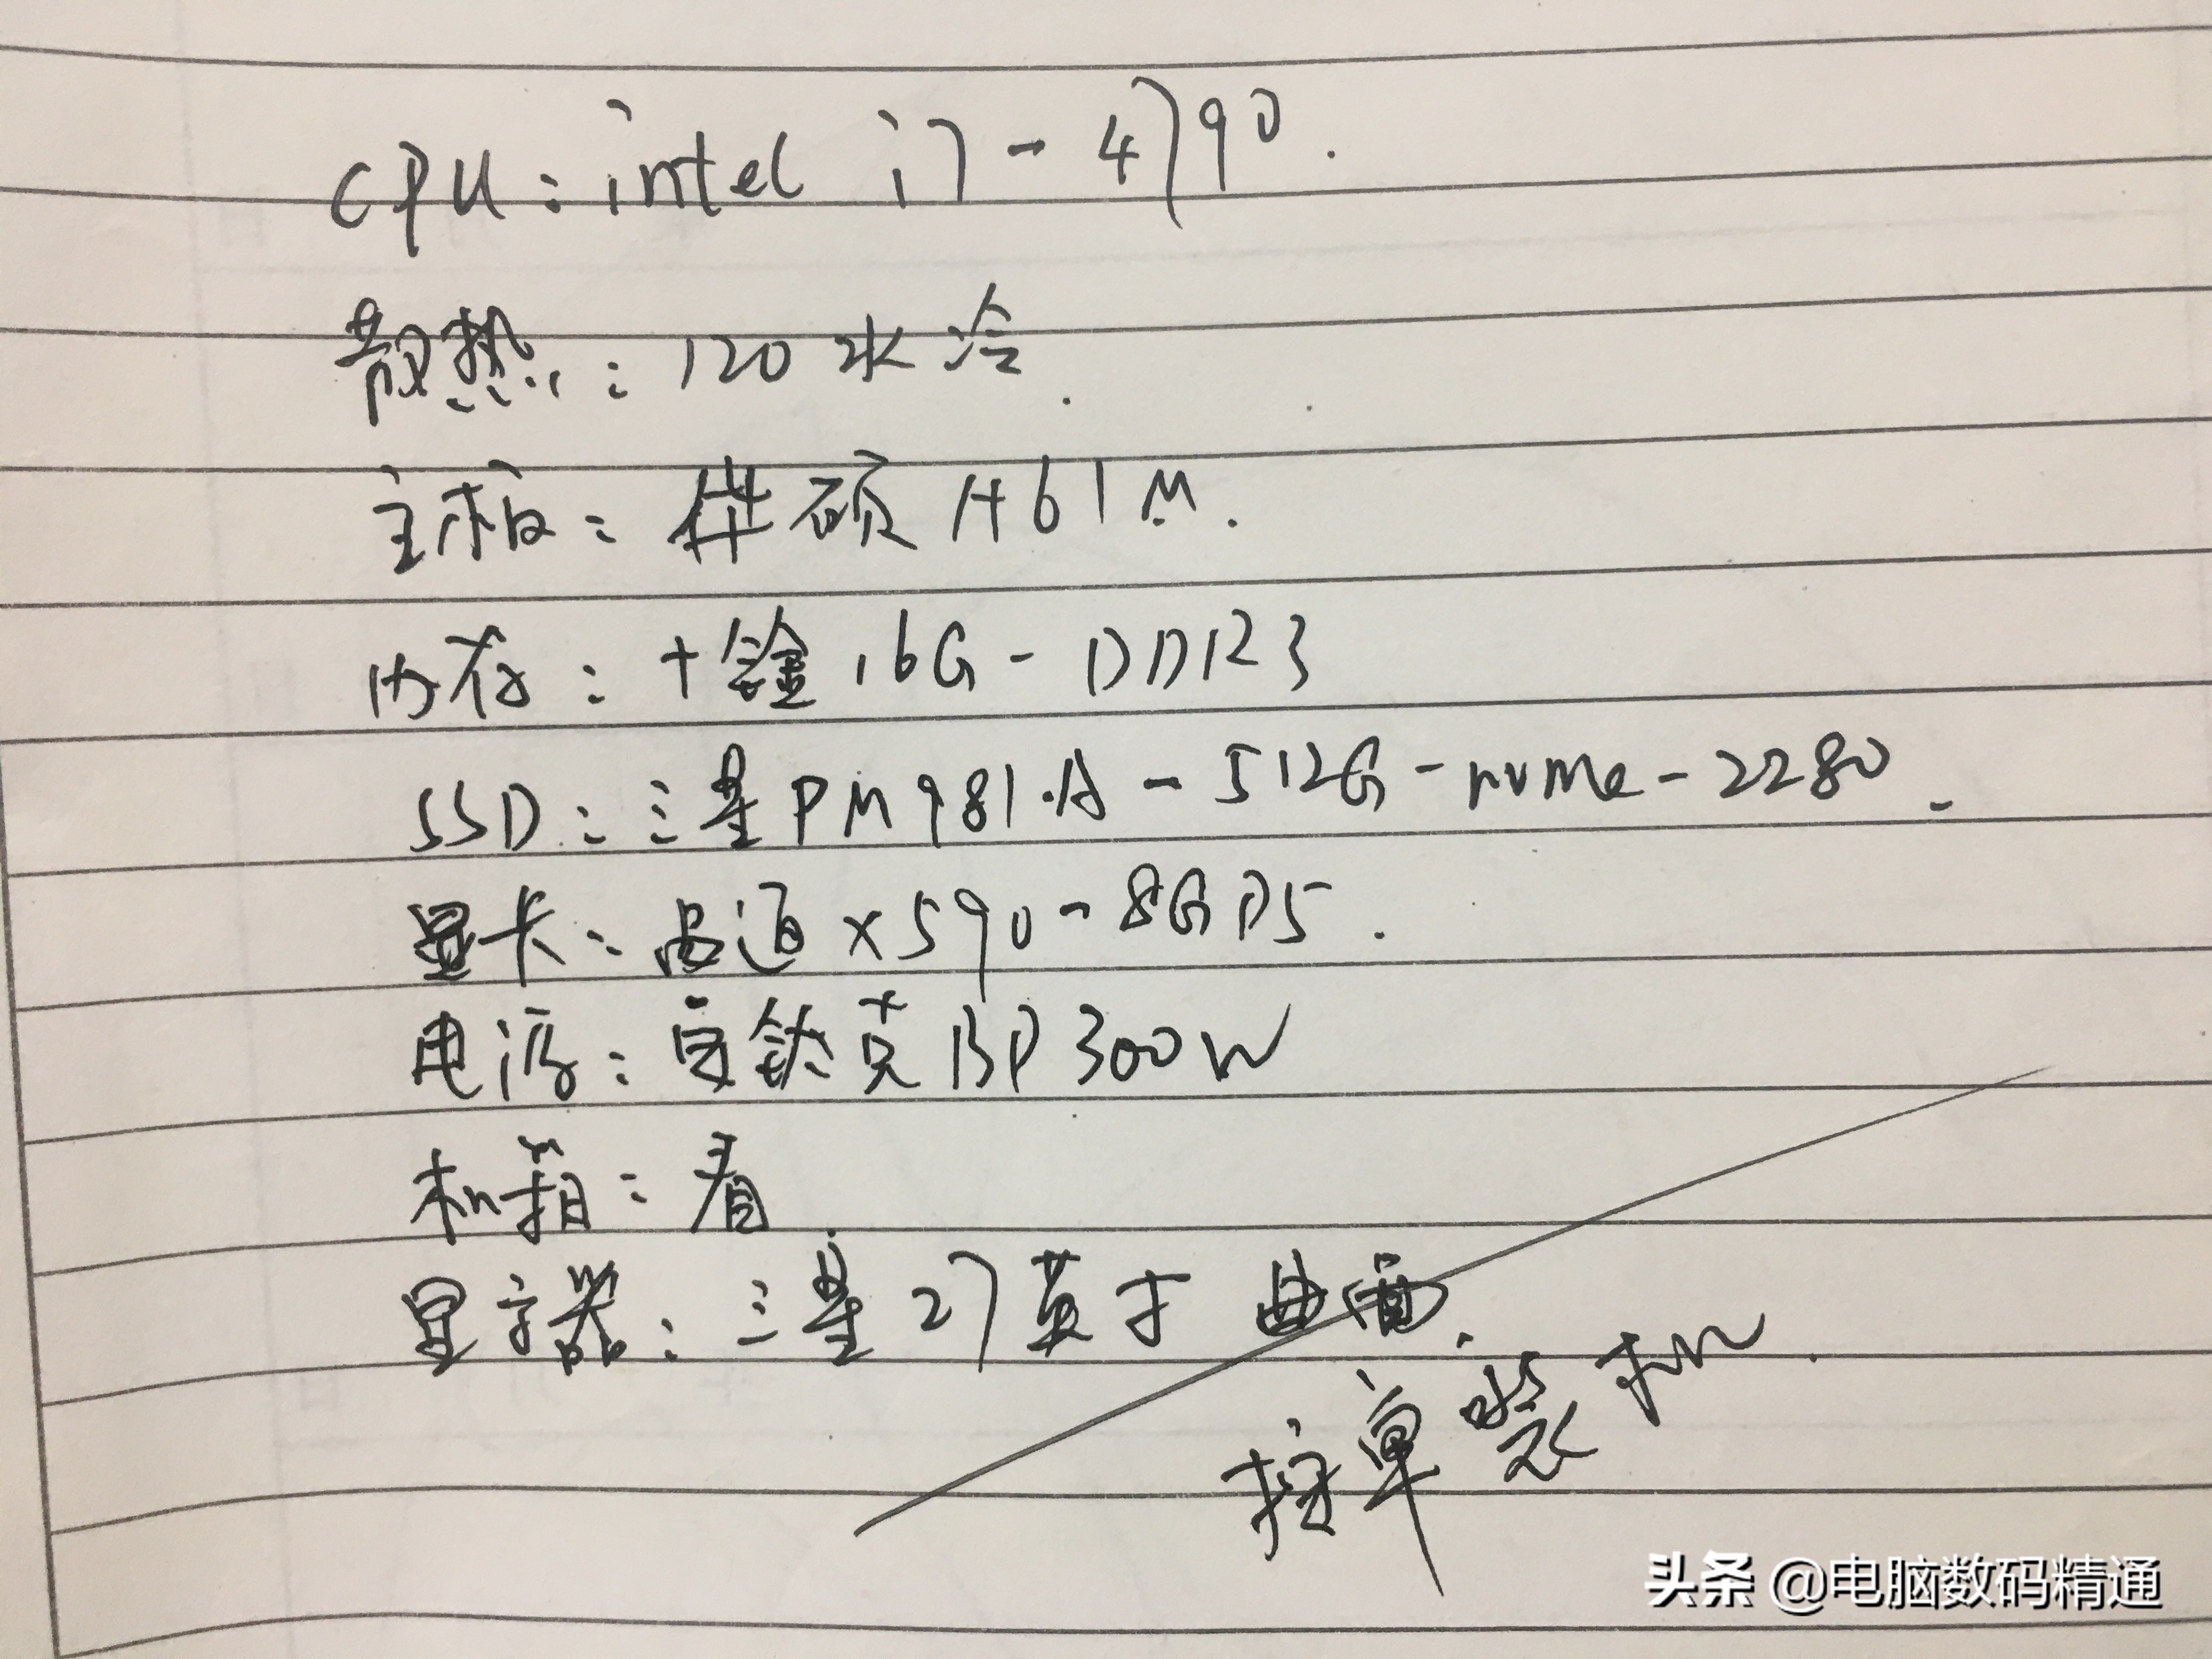 CPU：intel i7-4790.
散热：120水冷.
主板：华硕H61M.
内存：十铨16G-DDR3
SSD：三星PM981.A-512G-nvme-2280.
显卡：品通X590-8GD5.
电源：安钛克BP300W
机箱：看.
显示器：三星27英寸 曲面.
按单装机.
头条 @电脑数码精通